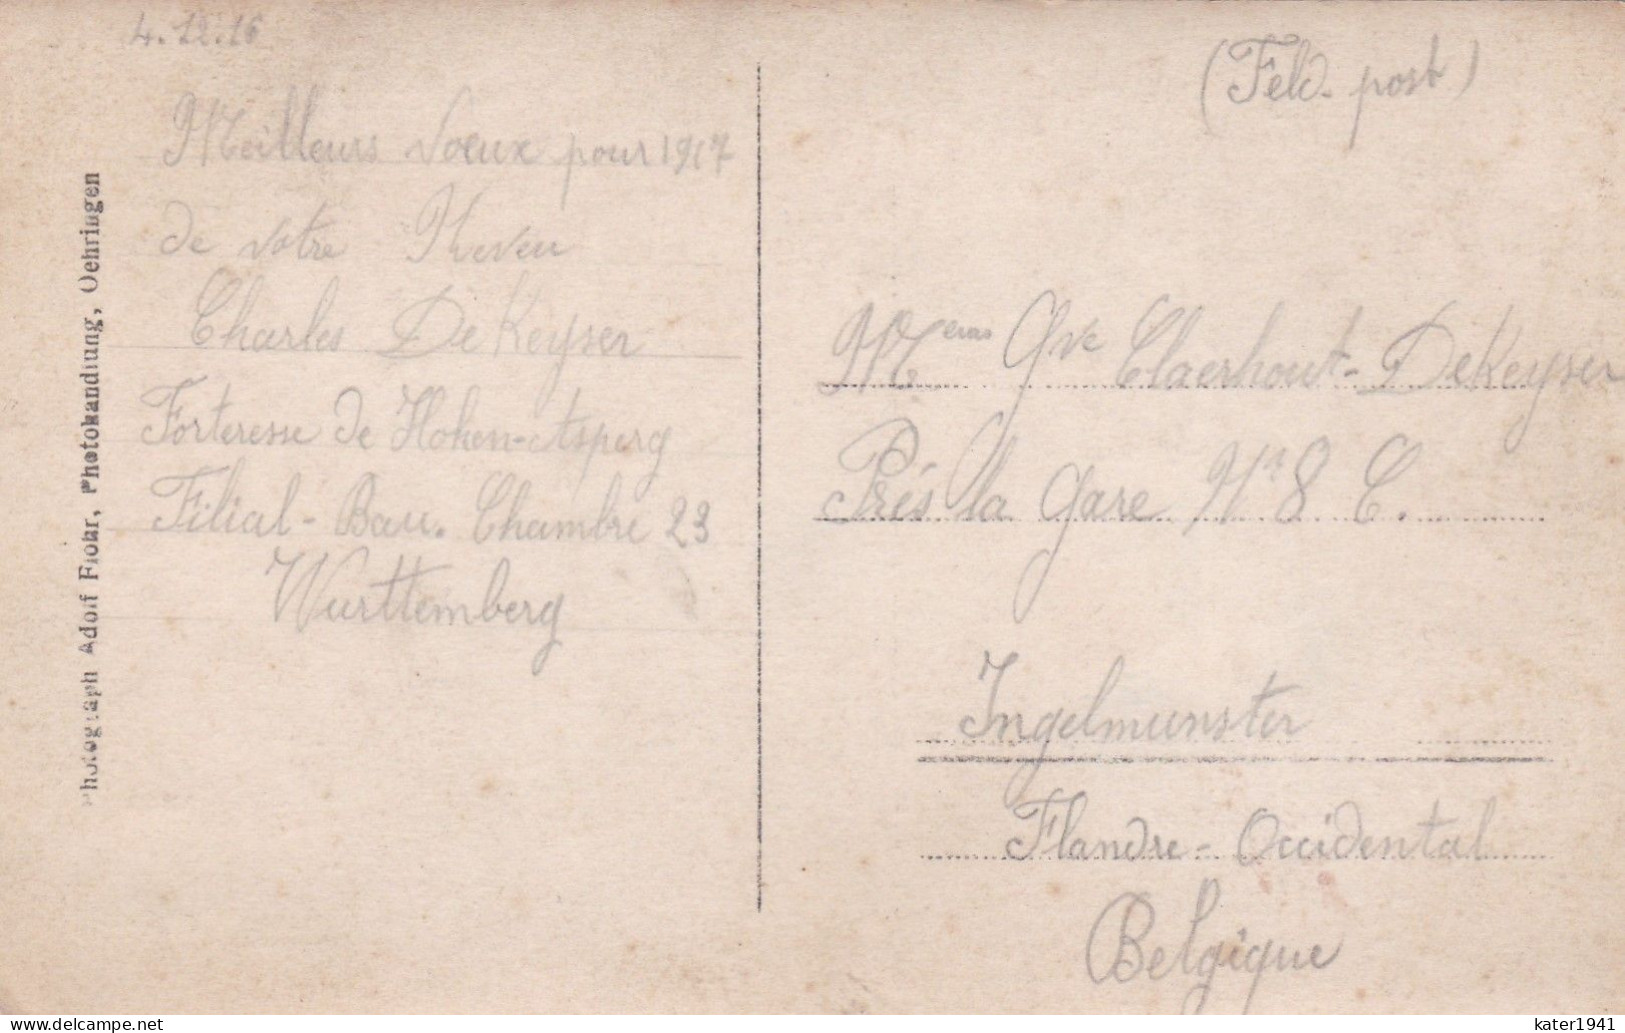 4.12.16
Meilleurs Voeux pour 1917
de votre Neveu
Charles DeKeyser
Forteresse de Hohen-Asperg
Filial-Bau. Chambre 23
Wurttemberg
Photograph Adolf Flohr, Photohandlung, Oehringen
(Feld-post)
Gve Claerhout-DeKeyser
Près la Gare N° 8 C.
Ingelmunster
Flandre-Occidental
Belgique
kater1941